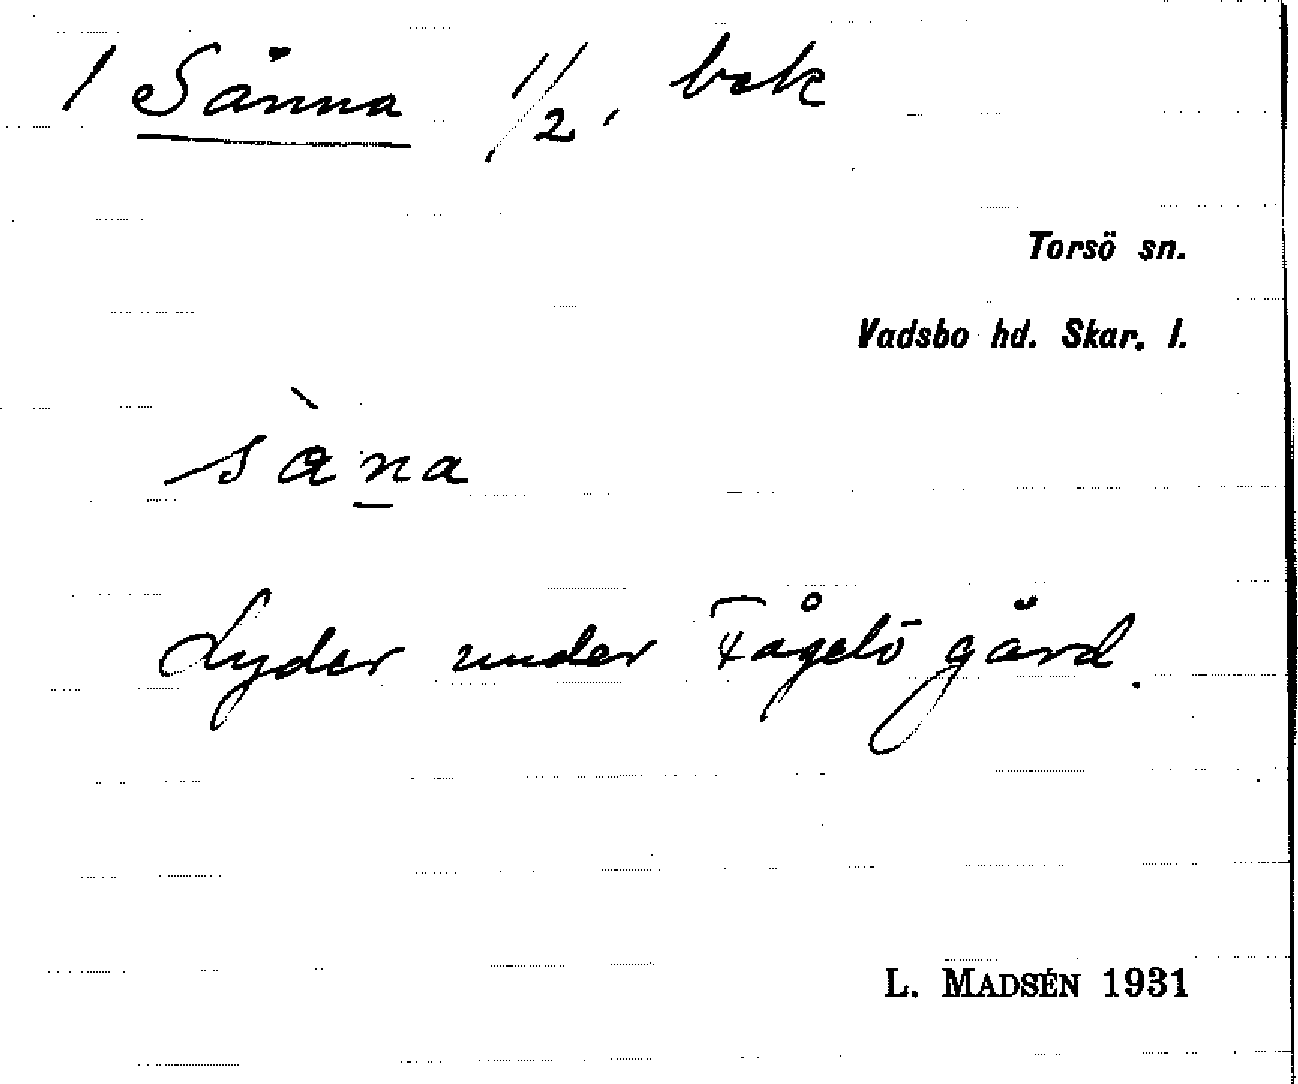 1 Sånna 1/2, bek
Torsö sn.
Vadsbo hd. Skar. l.
sàna
Lyder under Fågelö gård.
L. MADSÉN 1931